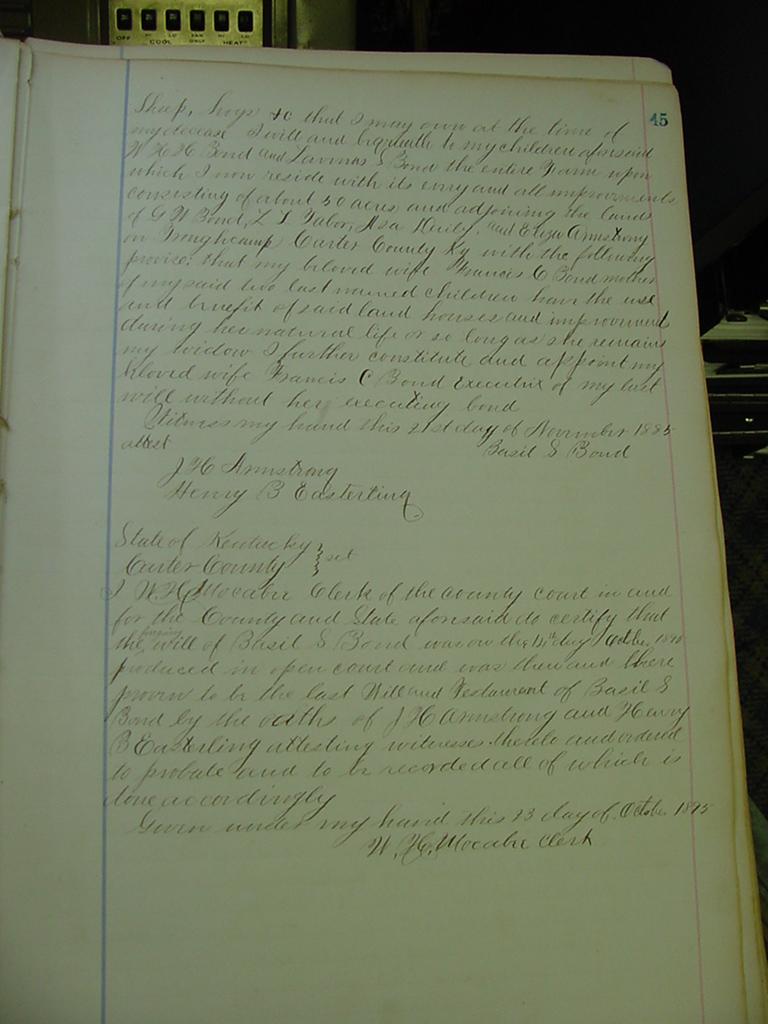 OFF HI LO FAN ONLY HI LO
COOL HEAT
45
Sheep, hogs &c that I may own at the time of
my decease I will and bequeath to my children aforesaid
W H H Bond and S Bond the entire Farm upon
which I now reside with its every and all improvements
consisting of about 50 acres and adjoining the lands
of G W Bond, L L Tabor, Asa and Eliza Armstrong
on Troughcamp Carter County Ky with the following
proviso: that my beloved wife Francis C Bond mother
of my said two last named children have the use
and benefit of said land houses and improvement
during her natural life or so long as she remains
my widow I further constitute and appoint my
beloved wife Francis C Bond Executrix of my last
will without her executing bond
Witness my hand this 21st day of November 1885
attest Basil S Bond
J H Armstrong
Henry B Easterling
State of Kentucky
Carter County } sct
I W. H. Mocabee Clerk of the county court in and
for the County and State aforesaid do certify that
the foregoing will of Basil S Bond was on the day
produced in open court and was then and there
proven to be the last Will and Testament of Basil S
Bond by the oaths of J H Armstrong and Henry
B Easterling attesting witnesses thereto and ordered
to probate and to be recorded all of which is
done accordingly
Given under my hand this 23 day of October 1895
W. H. Mocabee Clerk